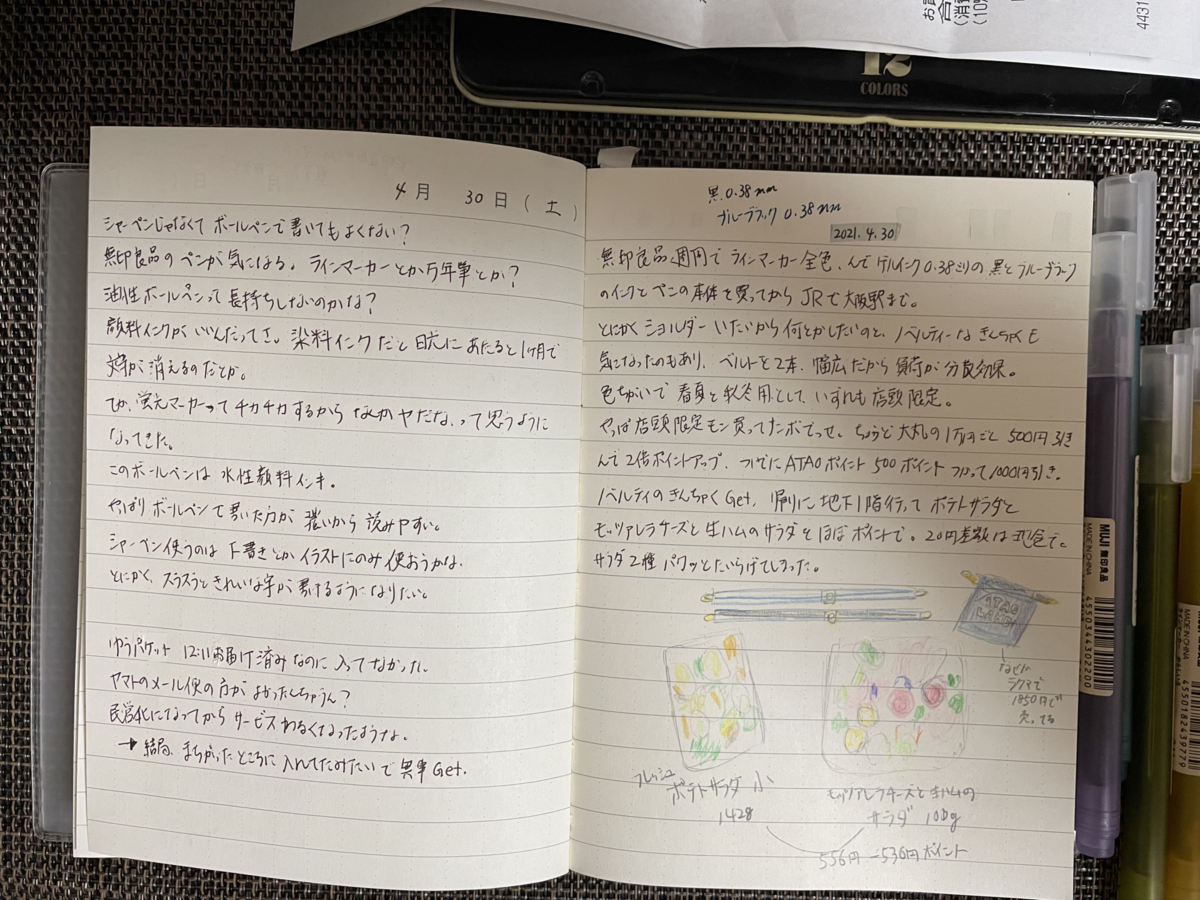 お買
合
(消費
(10%
4431
12
COLORS
4月 30日(土)
シャーペンじゃなくてボールペンで書いてもよくない?
無印良品のペンが気になる。ラインマーカーとか万年筆とか?
油性ボールペンって長持ちしないのかな?
顔料インクがいいんだってさ。染料インクだと日光にあたると1ヶ月で
文字が消えるのだとか。
でか、蛍光マーカーってチカチカするからなんかヤだな、って思うように
なってきた。
このボールペンは水性顔料インキ。
やっぱりボールペンで書いた方が濃いから読みやすい。
シャーペン使うのは下書きとかイラストにのみ使おうかな。
とにかく、スラスラときれいな字が書けるようになりたいと
ゆうパケット 12:11お届け済みなのに入ってなかった
ヤマトのメール便の方がよかったんちゃうん?
民営化になってからサービスわるくなったような。
→結局、まちがったところに入れてたみたいで無事Get.
黒0.38mm
ブルーブラック 0.38mm
2021.4.30
無印良品週間でラインマーカー全色、んでゲルインク0.38ミリの黒とブルーブラック
のインクとペンの本体を買ってからJRで大阪駅まで。
とにかくショルダーいたいから何とかしたいのと、ノベルティーなきんちゃくも
気になったのもあり、ベルトを2本、幅広だから負荷が分散効果。
色ちがいで春夏と秋冬用として、いずれも店頭限定。
やっぱ店頭限定モン買ってナンボでっせ。ちょうど大丸の1万円ごと500円引き
んで2倍ポイントアップ、ついでにATAOポイント500ポイントつかって1000円引き。
ノベルティのきんちゃくGet、帰りに地下1階行ってポテトサラダと
モッツアレラチーズと生ハムのサラダをほぼポイントで。20円差数は現金で。
サラダ2種パクッとたいらげてしまった。
ATAO
なぜか
ラクマで
1850円で
売ってる
フレッシュ
ポテトサラダ 小
142g
モッツアレラチーズと生ハムの
サラダ 100g
556円-536円ポイント
MUJI 無印良品
MADE IN CHINA
4550344302200
MADE IN CHINA
4550182439779